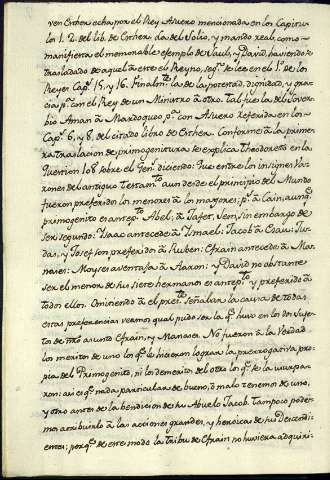 ven Esther echa por el Rey Asuero mencionada en los Capitu-
los 1. 2. del lib. de Esther. La del Solio, y mando real, como
manifiesta el memorable exemplo de Saul, y David, haviendose
trasladado de aquel à este el Reyno, seg.n se lee en el 1.o de los
Reyes Cap.s 15. y 16. Finalm.te la de la potestad, dignidad, y gra-
cia p.a con el Rey de un Ministro à otro. Tal fue la del Sover-
bio Aman à Mardoqueo p.a con Asuero referida en los
Cap.s 6. y 8. del citado libro de Esther. Conforme à la prime-
ra traslacion de primogenitura se explica Theodoreto en la
Question 108 sobre el Gen. diciendo: Que entre los insignes Va-
rones del antiguo Testam.to aun desde el principio del Mundo
fueron preferidos los menores à los mayores; p.s à Cain, aunq.e
primogenito es antep.to Abel; à Jafet, Sem, sin embargo de
ser segundo: Isaac antecede à Ismael: Jacob à Esau: Ju-
das, y Josef son preferidos à Ruben: Efrain antecede à Ma-
nases: Moyses aventaja à Aaron: y David no obstante
ser el menor de sus siete hermanos es antep.to y preferido à
todos ellos. Omitiendo à el pres.te señalar la causa de todas
estas preferencias veamos qual pudo ser la q.e huvo en los dos Suge-
tos de nro asunto Efrain, y Manases. No fueron à la Verdad
los meritos de uno los q.e le hicieron lograr la prerrogativa pro-
pia del Primogenito, ni los demeritos del otro los q.e se la usurpa-
ron: asi es q.e nada particular de bueno, ò malo tenemos de uno,
y otro antes de la bendicion de su Abuelo Jacob. Tampoco pode-
mos atribuirlo à las acciones grandes, y heroicas de sus Descendi-
entes; porq.e de este modo la tribu de Efrain no huviera adquiri-